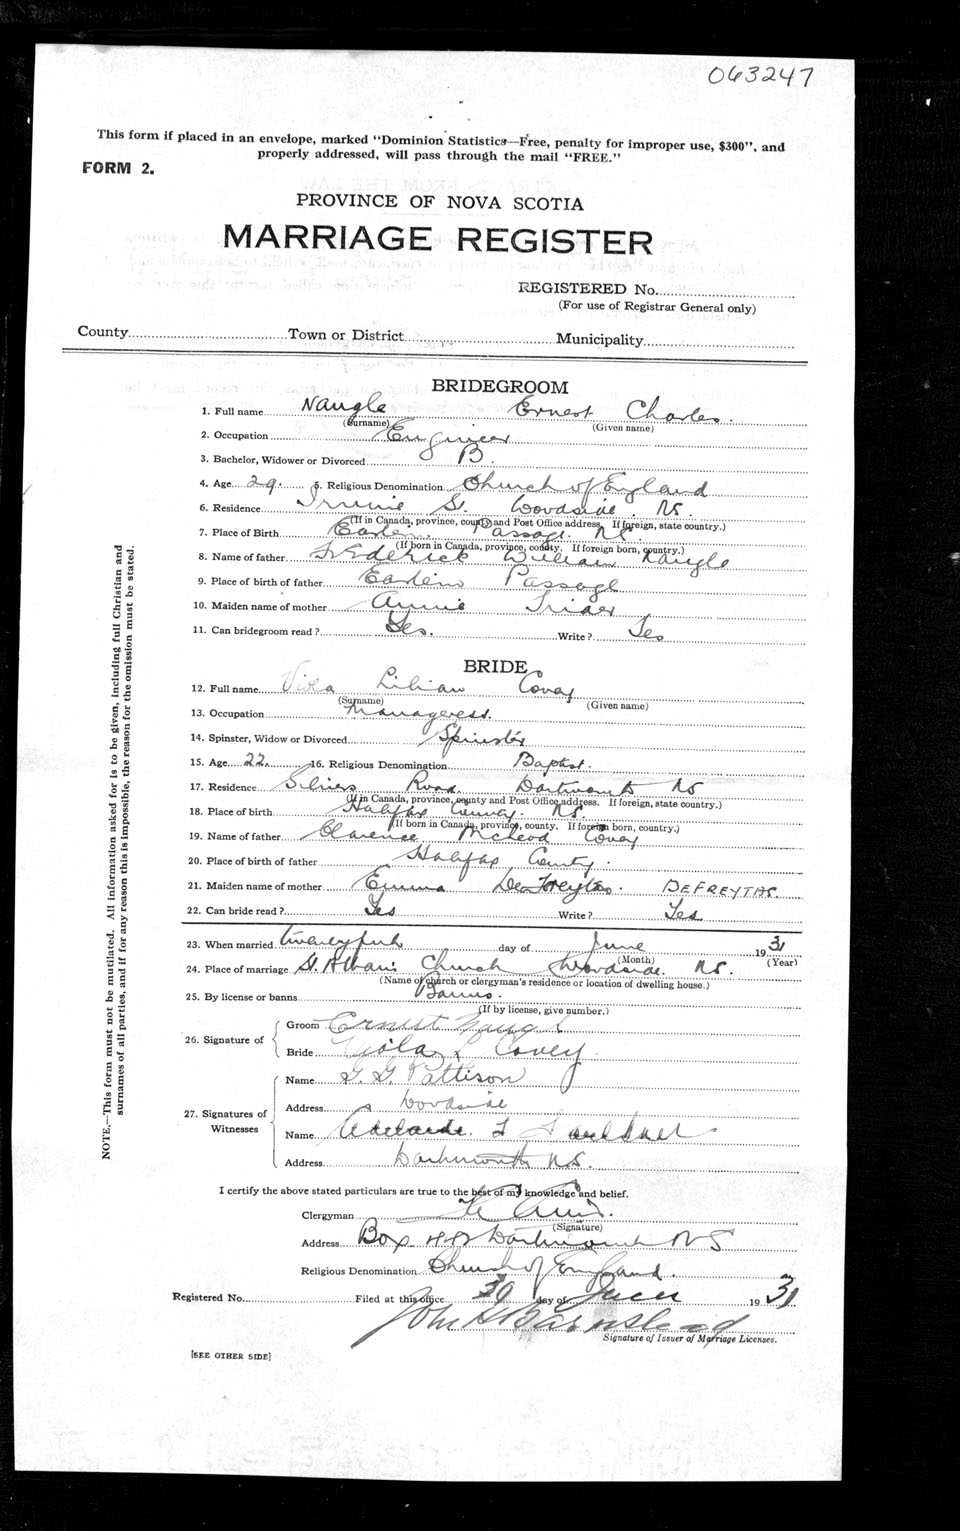 063247
This form if placed in an envelope, marked "Dominion Statistics—Free, penalty for improper use, $300", and
properly addressed, will pass through the mail "FREE."
FORM 2.
PROVINCE OF NOVA SCOTIA
MARRIAGE REGISTER
REGISTERED No.
(For use of Registrar General only)
County Town or District Municipality
BRIDEGROOM
1. Full name Naugle Ernest Charles.
(Surname) (Given name)
2. Occupation Engineer
3. Bachelor, Widower or Divorced B.
4. Age 29. 5. Religious Denomination Church of England
6. Residence St. Woodside. N.S.
(If in Canada, province, county and Post Office address. If foreign, state country.)
7. Place of Birth Eastern Passage. N.S.
(If born in Canada, province, county. If foreign born, country.)
8. Name of father Frederick William Naugle
9. Place of birth of father Eastern Passage
10. Maiden name of mother Annie Trider
11. Can bridegroom read? Yes. Write? Yes
BRIDE
12. Full name Viola Lilian Covey
(Surname) (Given name)
13. Occupation Manageress.
14. Spinster, Widow or Divorced Spinster
15. Age 22. 16. Religious Denomination Baptist.
17. Residence Road Dartmouth NS
(If in Canada, province, county and Post Office address. If foreign, state country.)
18. Place of birth Halifax County. N.S.
(If born in Canada, province, county. If foreign born, country.)
19. Name of father Clarence McLeod Covey
20. Place of birth of father Halifax County.
21. Maiden name of mother Emma DeFreytas. DEFREYTAS.
22. Can bride read? Yes Write? Yes
23. When married day of June 1931
(Month) (Year)
24. Place of marriage St. Albans Church Woodside. N.S.
(Name of church or clergyman's residence or location of dwelling house.)
25. By license or banns Banns.
(If by license, give number.)
26. Signature of
Groom Ernest Naugle
Bride Viola L Covey
27. Signatures of Witnesses
Name G. G. Pattison
Address Woodside
Name Adelaide
Address Dartmouth N.S.
I certify the above stated particulars are true to the best of my knowledge and belief.
Clergyman
(Signature)
Address Box Dartmouth N S
Religious Denomination Church of England.
Registered No. Filed at this office 30 day of June 1931
John Barnstead
Signature of Issuer of Marriage Licenses.
[SEE OTHER SIDE]
NOTE.—This form must not be mutilated. All information asked for is to be given, including full Christian and
surnames of all parties, and if for any reason this is impossible, the reason for the omission must be stated.